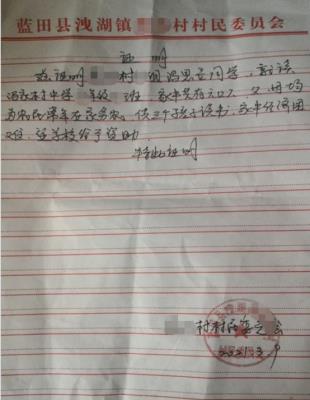 蓝田县洩湖镇 村村民委员会
证明
兹证明 村 组冯思 同学，就读
冯家村中学 年级 班 家中共有六口人，父母均
为农民常年在家务农，供三个孩子读书，家中经济困
难，望学校给予资助
特此证明
村村民委员会